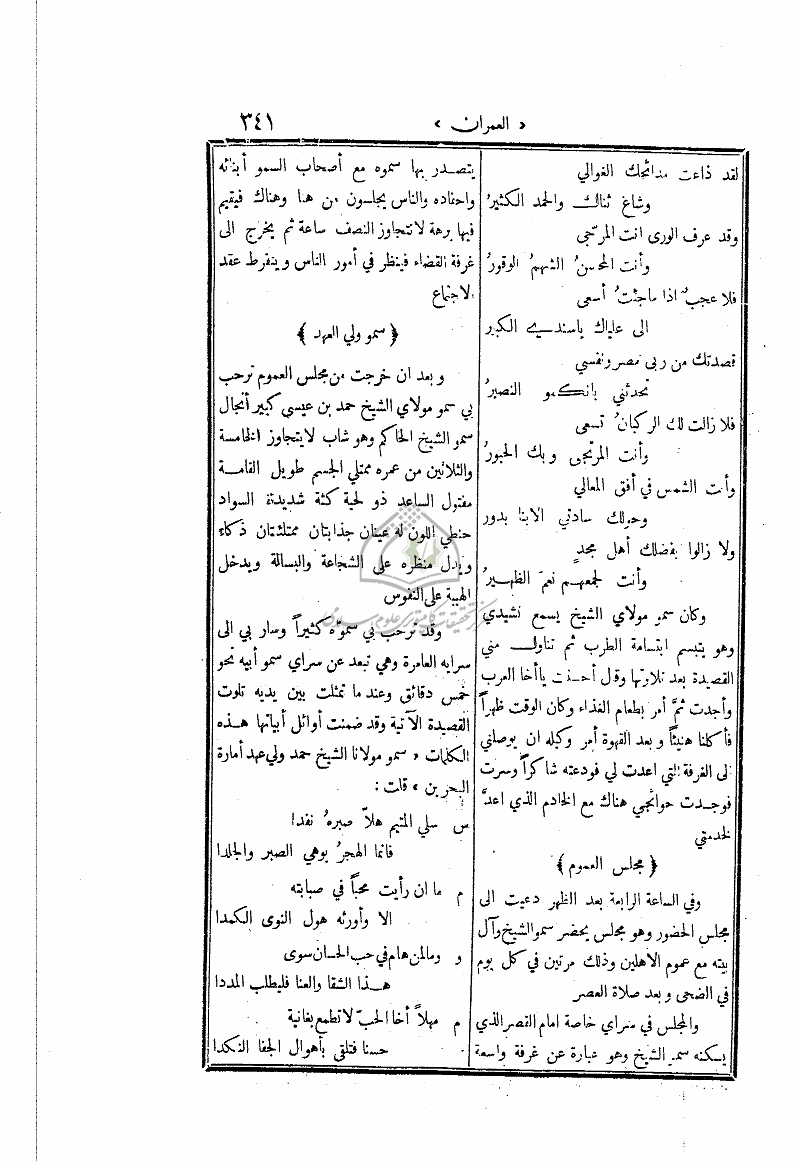 « العمران »
٣٤١
لقد ذاعت مدائحك الغوالي
وشاع ثناك والحمد الكثيرُ
وقد عرف الورى انت المرجى
وأنت المحسنُ الشهمُ الوقورُ
فلا عجبٌ اذا ماجئتُ أسعى
الى علياك ياسندي الكبير
قصدتك من ربى مصر ونفسي
تحدثني بانكمو النصيرُ
فلا زالت لك الركبانُ تسعى
وأنت المرتجى وبك الحبورُ
وأنت الشمس في أفق المعالي
وحولك سادتي الابنا بدور
ولا زالوا بفضلك أهل مجدٍ
وأنت لجمعهم نعمَ الظهيرُ
وكان سمو مولاي الشيخ يسمع نشيدي
وهو يتبسم ابتسامة الطرب ثم تناول مني
القصيدة بعد تلاوتها وقال أحسنت ياأخا العرب
وأجدت ثمَّ أمر بطعام الغذاء وكان الوقت ظهراً
فأكلنا هنيئاً وبعد القهوة أمر وكيله ان يوصلني
الى الغرفة التي اعدت لي فودعته شاكراً وسرت
فوجدت حوائجي هناك مع الخادم الذي اعدَّ
لخدمتي
﴿ مجلس العموم ﴾
وفي الساعة الرابعة بعد الظهر دعيت الى
مجلس الحضور وهو مجلس يحضر سمو الشيخ وآل
بيته مع عموم الاهلين وذلك مرتين في كل يوم
في الضحى وبعد صلاة العصر
والمجلس في سراي خاصة امام القصر الذي
يسكنه سمو الشيخ وهو عبارة عن غرفة واسعة
يتصدر بها سموه مع أصحاب السمو أبنائه
واحفاده والناس يجلسون من هنا وهناك فيقيم
فيها برهة لاتتجاوز النصف ساعة ثم يخرج الى
غرفة القضاء فينظر في أمور الناس وينفرط عقد
الاجتماع
﴿ سمو ولي العهد ﴾
وبعد ان خرجت من مجلس العموم ترحب
بي سمو مولاي الشيخ حمد بن عيسى كبير أنجال
سمو الشيخ الحاكم وهو شاب لايتجاوز الخامسة
والثلاثين من عمره ممتلي الجسم طويل القامة
مفتول الساعد ذو لحية كثة شديدة السواد
حنطي اللون له عينان جذابتان ممتلئتان ذكاء
ويدل منظره على الشجاعة والبسالة ويدخل
الهيبة على النفوس
وقد ترحب بي سموّه كثيراً وسار بي الى
سرايه العامرة وهي تبعد عن سراي سمو أبيه نحو
خمس دقائق وعند ما تمثلت بين يديه تلوت
القصيدة الآتية وقد ضمنت أوائل أبياتها هذه
الكلمات « سمو مولانا الشيخ حمد ولي عهد أمارة
البحرين » قلت :
س سلي المتيم هلاّ صبرهُ نفدا
فانما الهجرُ يوهي الصبر والجلدا
م ما ان رأيت محباً في صبابته
الا وأورثه هول النوى الكمدا
و ومالمن هام في حب الحسان سوى
هذا الشقا والعنا فليطلب المددا
م مهلاً أخا الحبّ لاتطمع بغانية
حسنا فتلقى بأهوال الجفا النكدا